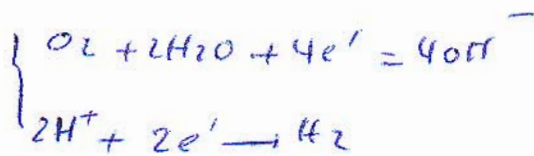 O2 + 2H2O + 4e' = 4OH⁻
2H⁺ + 2e' → H2